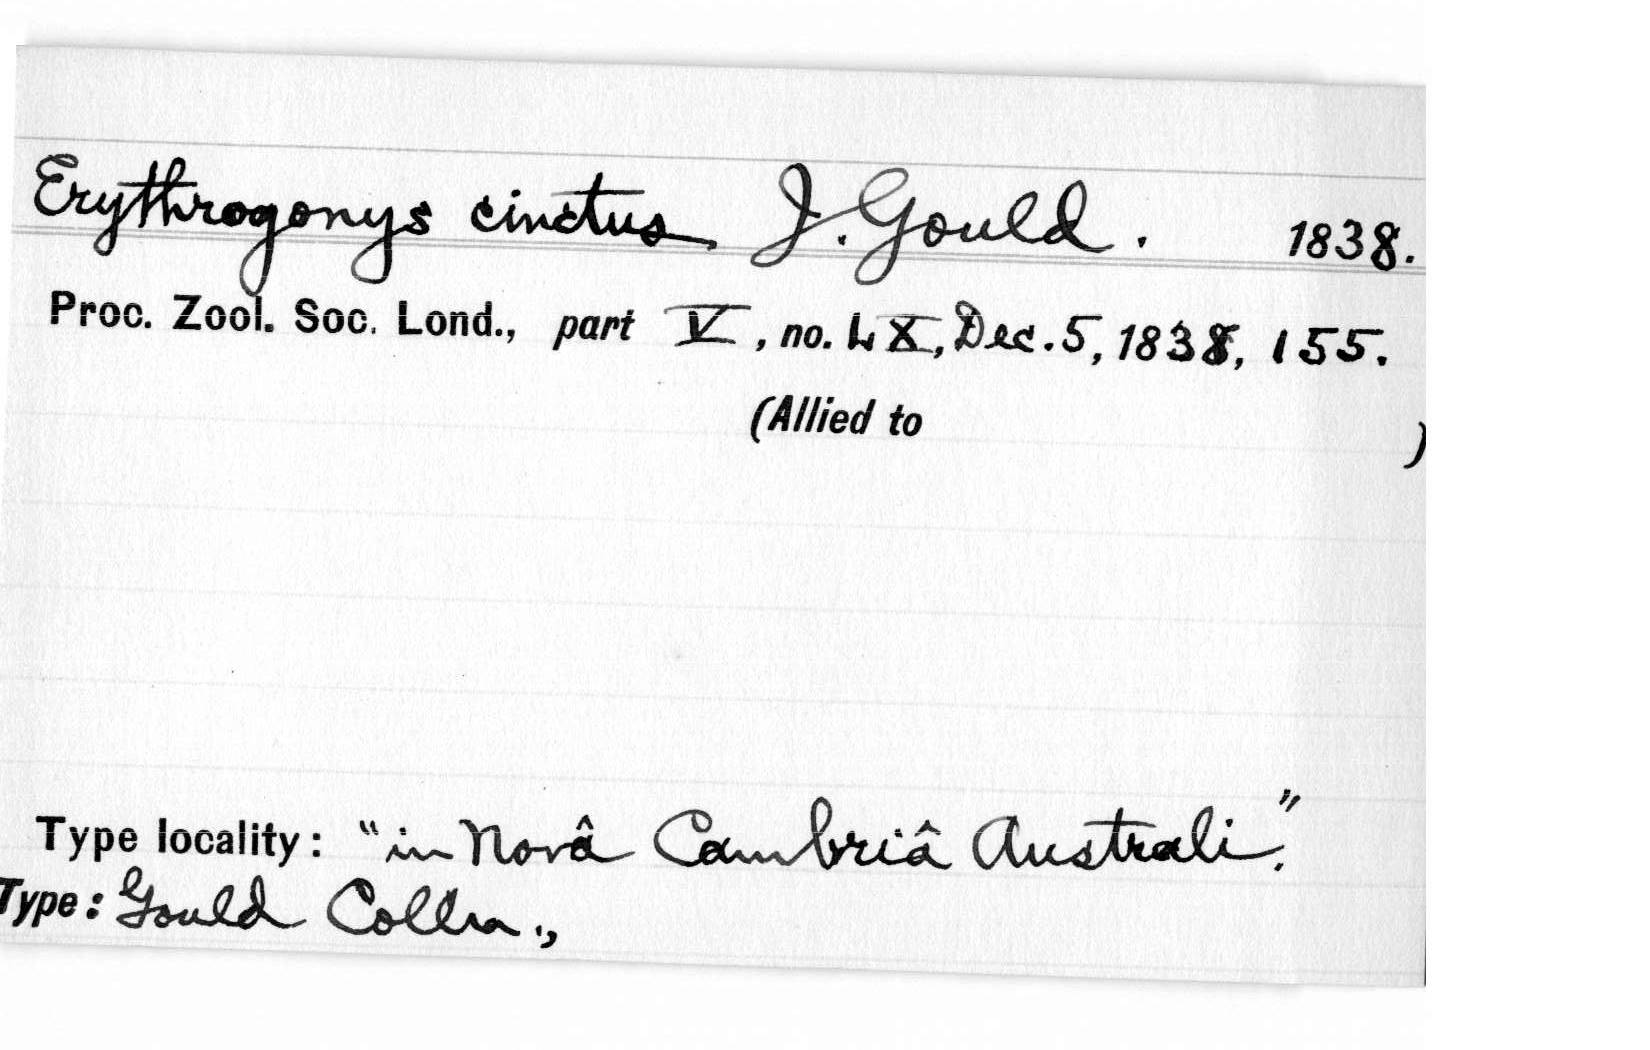 Erythrogonys cinctus J. Gould. 1838.
Proc. Zool. Soc. Lond., part V, no. LX, Dec. 5, 1838, 155.
(Allied to )
Type locality: "in Novâ Cambriâ Australi."
Type: Gould Colln.,